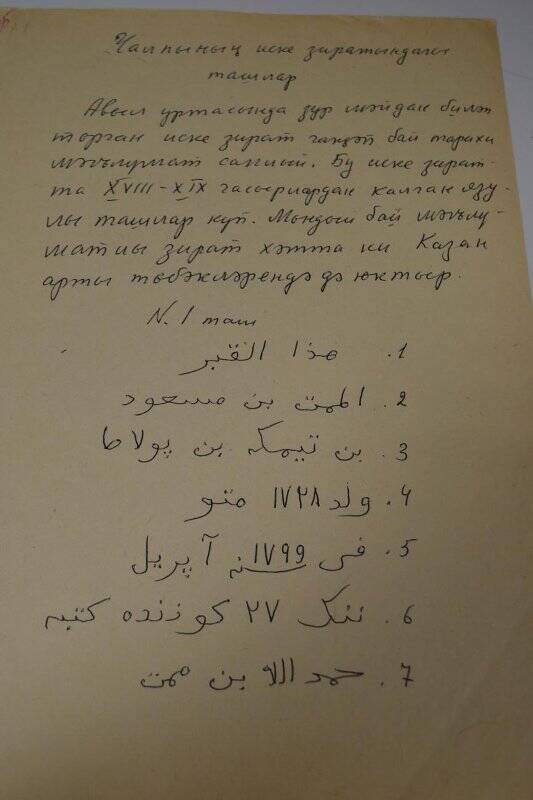 Чалпының иске зиратындагы
ташлар
Авыл уртасында зур мәйдан биләп
торган иске зират гаҗәп бай тарихи
мәгълүмат саклый. Бу иске зират-
та XVIII-XIX гасырлардан калган язу-
лы ташлар күп. Мондый бай мәгълү-
матлы зират хәтта ки Казан
арты төбәкләрендә дә юктыр.
N. 1 таш
1. هذا القبر
2. المت بن مسعود
3. بن تيمكه بن پولاط
4. ولد ١٧٢٨ متو
5. فى ١٧٩٩ سنه آپريل
6. ننك ٢٧ كوزنده كتبه
7. حمد الله بن ممت